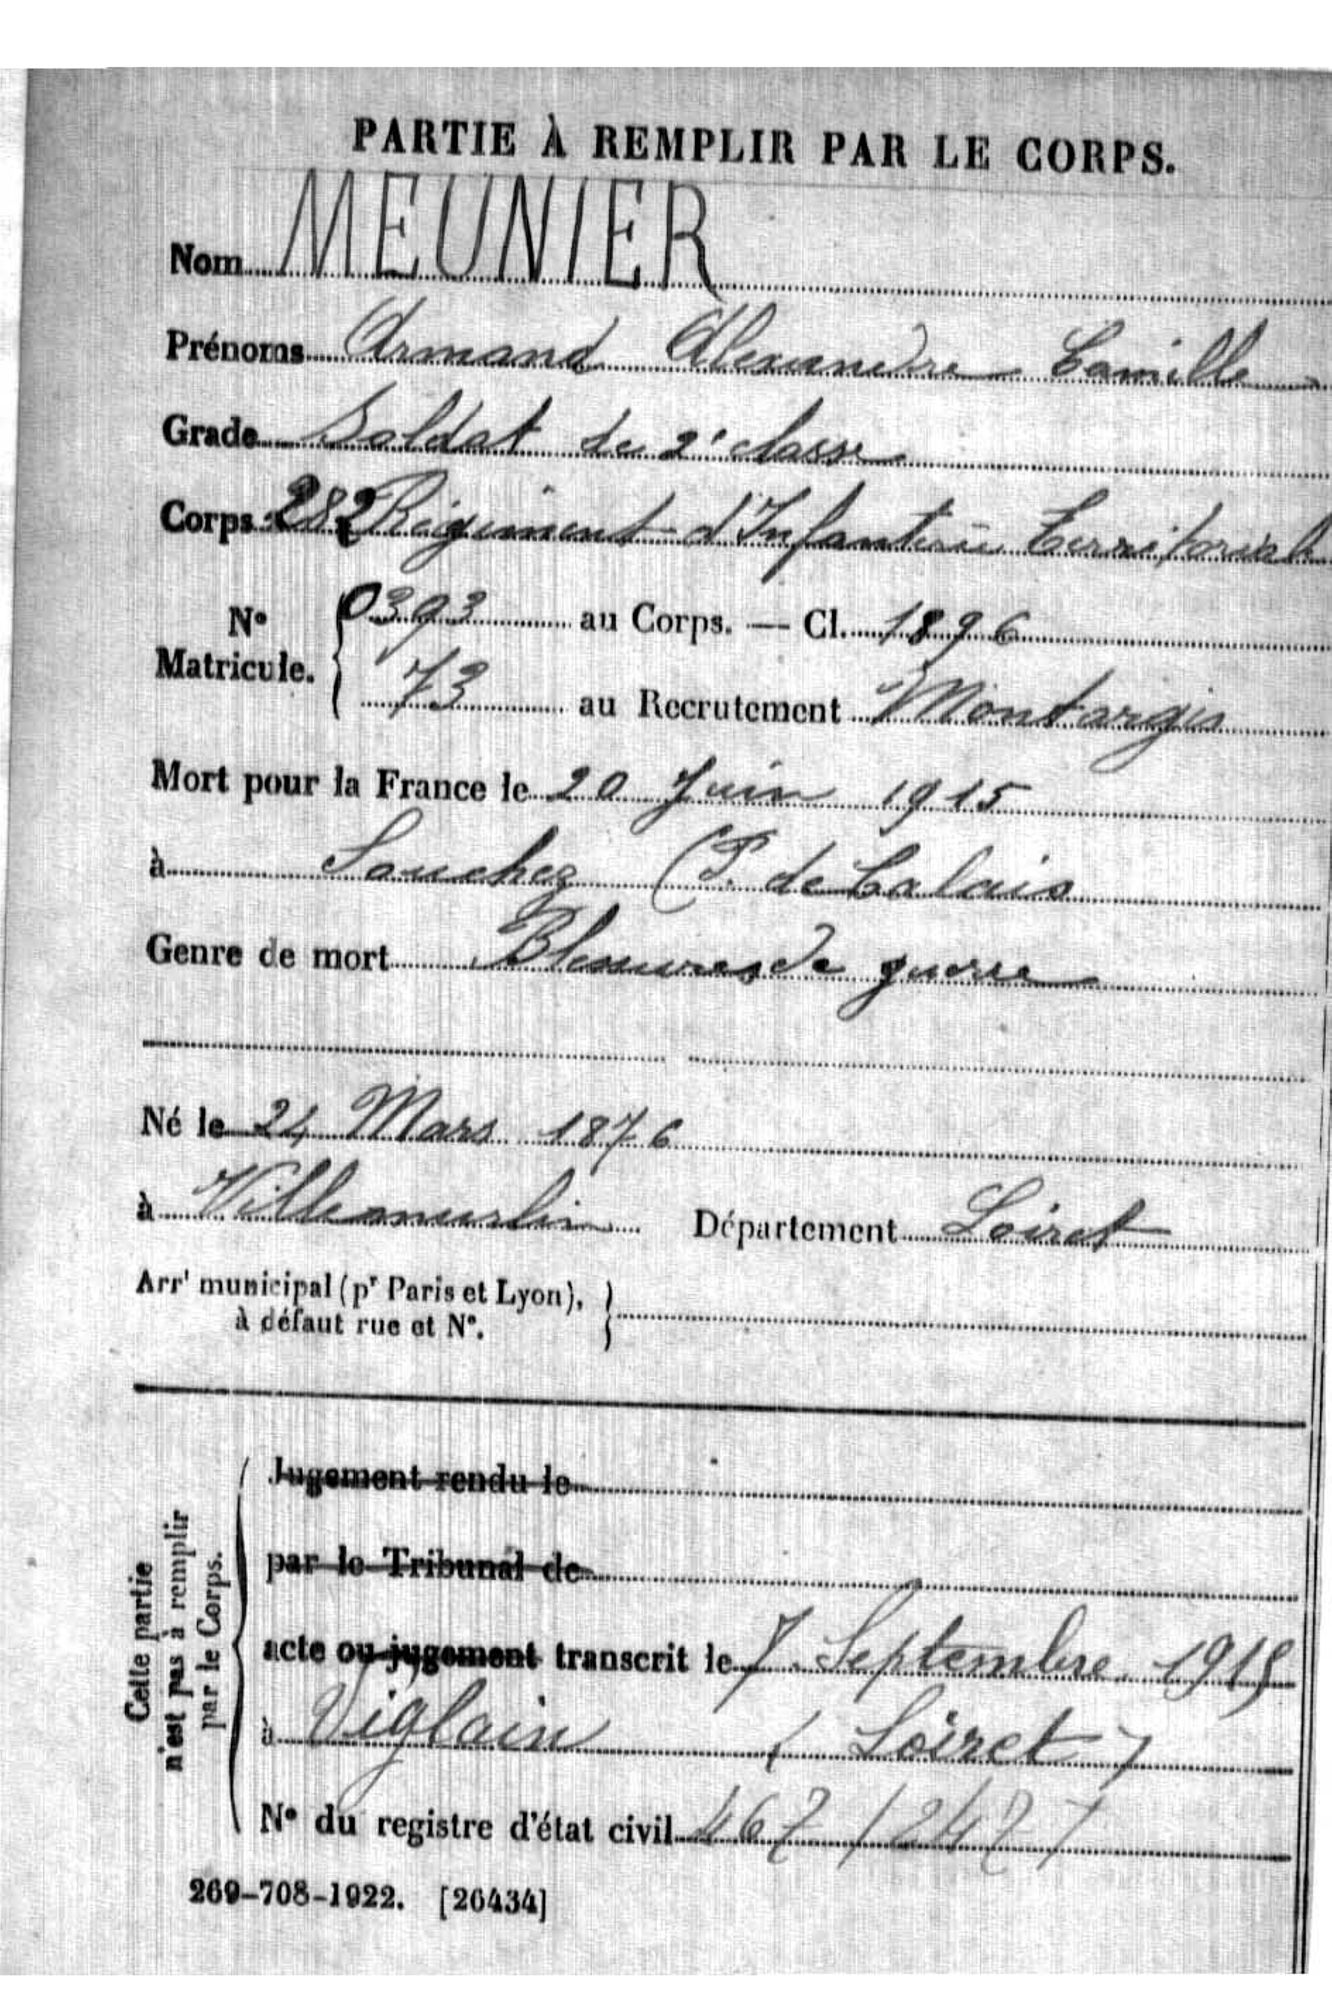 PARTIE À REMPLIR PAR LE CORPS.
Nom MEUNIER
Prénoms Armand Alexandre Camille
Grade Soldat de 2e classe
Corps 282 Régiment d'Infanterie Territoriale
N° Matricule. 0393 au Corps. — Cl. 1896
73 au Recrutement Montargis
Mort pour la France le 20 Juin 1915
à Souchez (P. de Calais
Genre de mort Blessures de guerre
Né le 24 Mars 1876
à Villemurlin Département Loiret
Arrt municipal (pr Paris et Lyon),
à défaut rue et N°.
Cette partie
n'est pas à remplir
par le Corps.
Jugement rendu le
par le Tribunal de
acte ou jugement transcrit le 7 Septembre 1915
à Viglain (Loiret)
N° du registre d'état civil 467
269-708-1922. [26434]